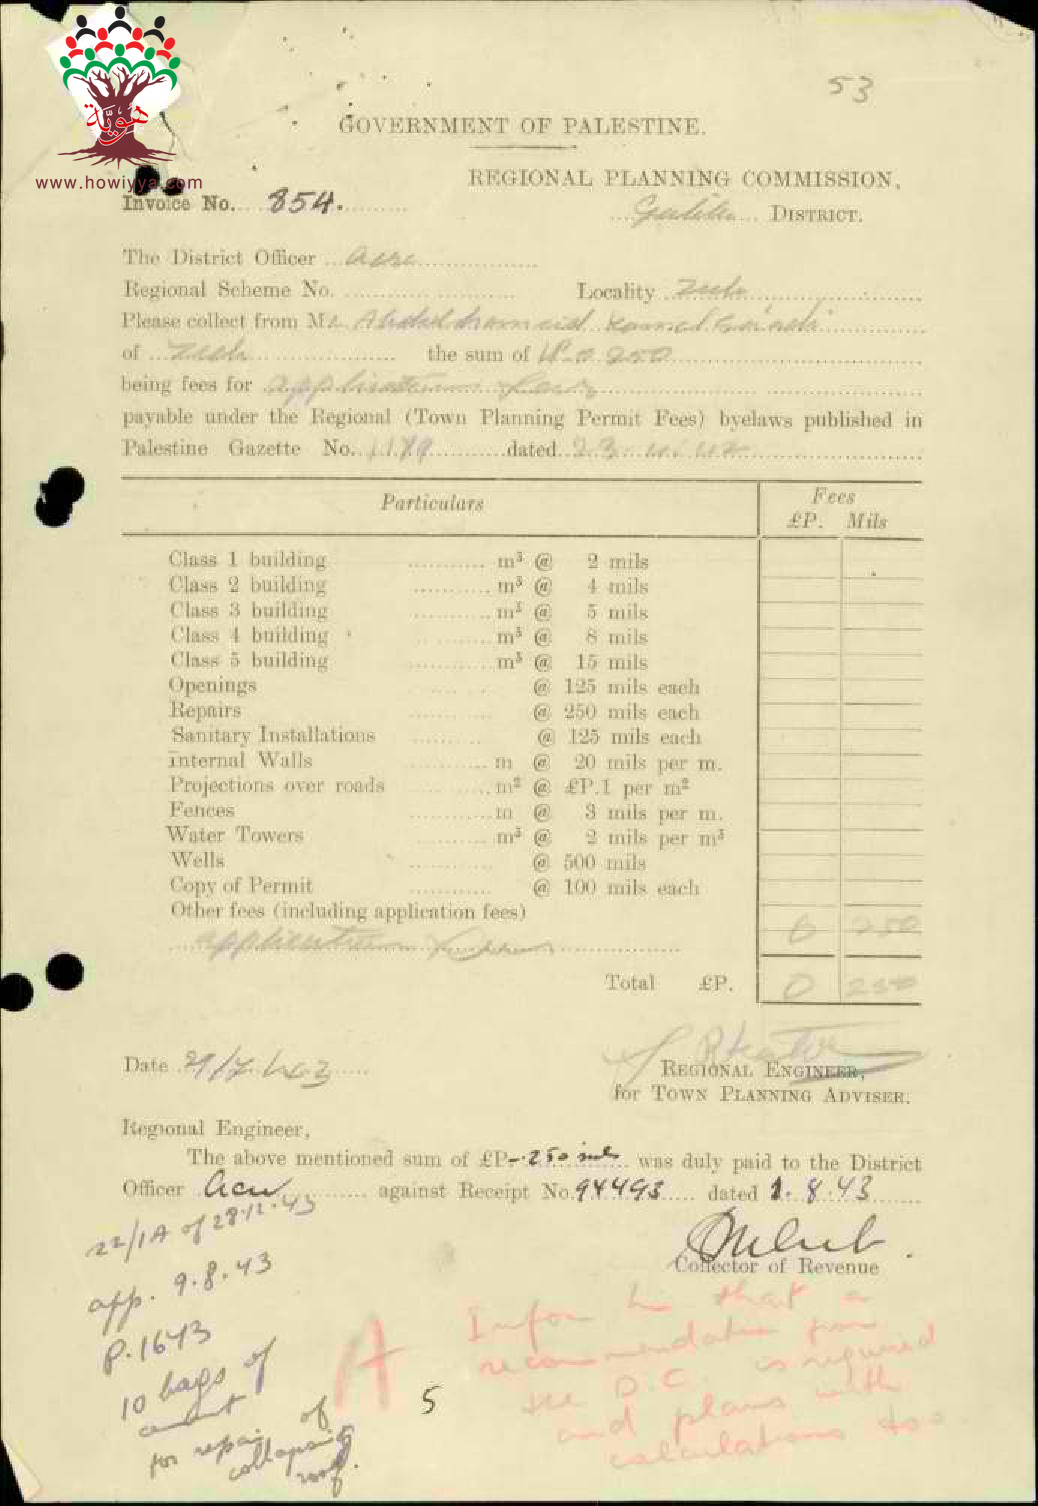 هوية
www.howiyya.com
53
GOVERNMENT OF PALESTINE.
REGIONAL PLANNING COMMISSION,
Invoice No. 854.
Galilee DISTRICT.
The District Officer Acre
Regional Scheme No.
Locality Zeeb
Please collect from Mr.
of Zeeb the sum of LP. 0.250
being fees for application fees
payable under the Regional (Town Planning Permit Fees) byelaws published in
Palestine Gazette No. 1189 dated 23.
Particulars
Fees
£P. Mils
Class 1 building m³ @ 2 mils
Class 2 building m³ @ 4 mils
Class 3 building m³ @ 5 mils
Class 4 building m³ @ 8 mils
Class 5 building m³ @ 15 mils
Openings @ 125 mils each
Repairs @ 250 mils each
Sanitary Installations @ 125 mils each
Internal Walls m @ 20 mils per m.
Projections over roads m² @ £P.1 per m²
Fences m @ 3 mils per m.
Water Towers m³ @ 2 mils per m³
Wells @ 500 mils
Copy of Permit @ 100 mils each
Other fees (including application fees)
application 0 250
Total £P. 0 250
Date 21/7/43
REGIONAL ENGINEER,
for TOWN PLANNING ADVISER.
Regional Engineer,
The above mentioned sum of £P-.250 mls was duly paid to the District
Officer Acre against Receipt No. 94493 dated 2.8.43
22/1A of 28.12.43
Collector of Revenue
app. 9.8.43
P.1643
10 bags of
cement
for repair of
collapsing
roof.
A
5
Inform him that a
recommendation from
the D.C. is required
and plans with
calculations too.